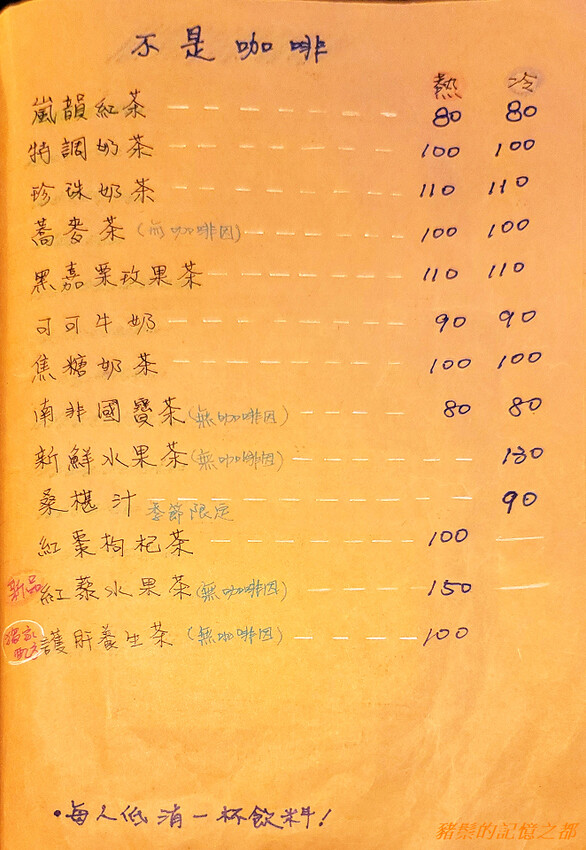 不是咖啡
熱 冷
嵐韻紅茶 80 80
特調奶茶 100 100
珍珠奶茶 110 110
蕎麥茶(無咖啡因) 100 100
黑嘉栗玫果茶 110 110
可可牛奶 90 90
焦糖奶茶 100 100
南非國寶茶(無咖啡因) 80 80
新鮮水果茶(無咖啡因) 130
桑椹汁 季節限定 90
紅棗枸杞茶 100
新品 紅藜水果茶(無咖啡因) 150
獨家配方 護肝養生茶(無咖啡因) 100
•每人低消一杯飲料!
豬鬃的記憶之都